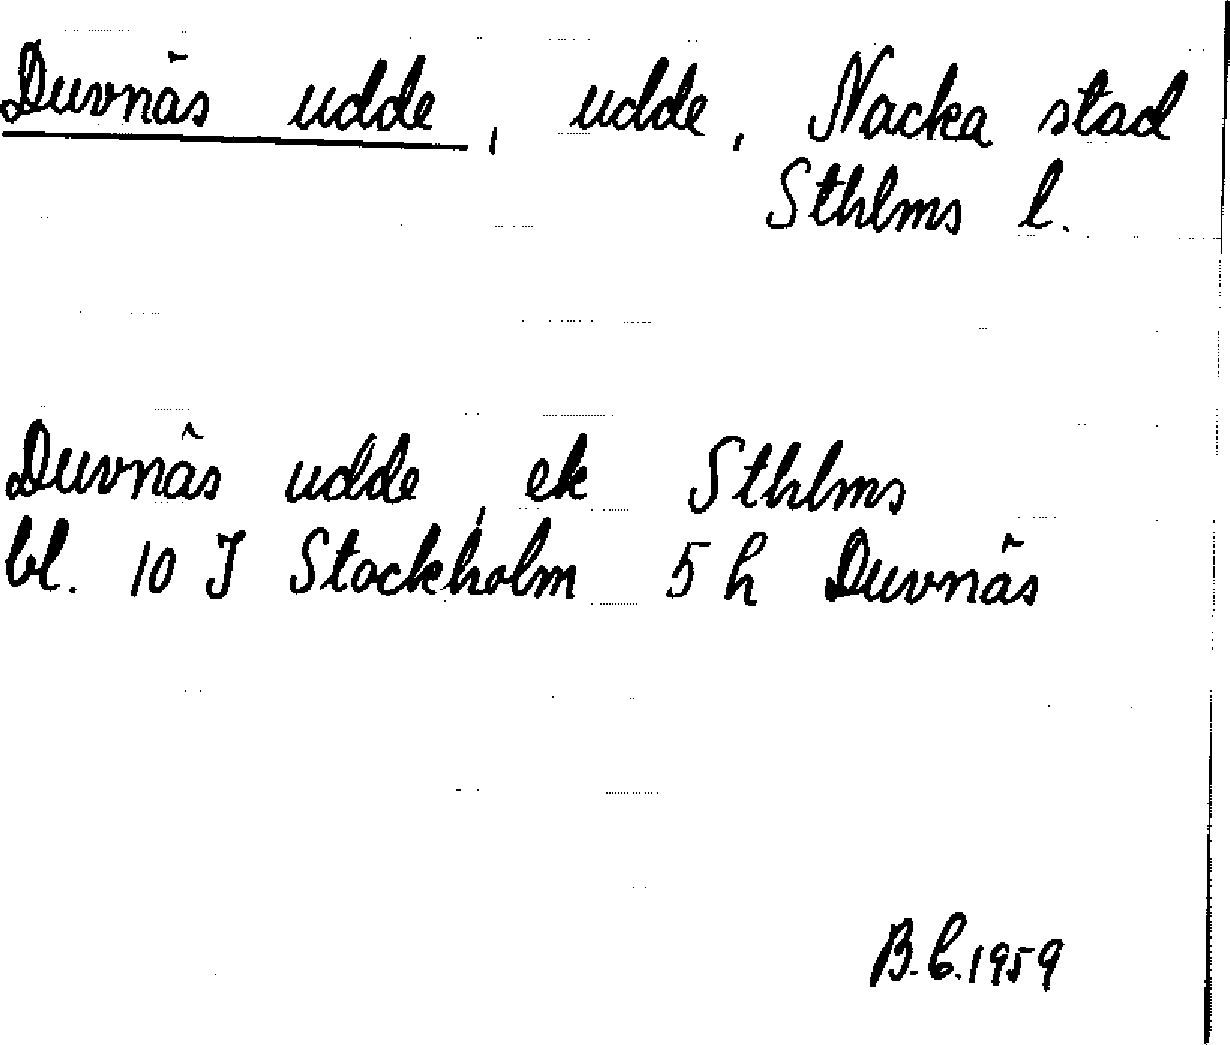 Duvnäs udde, udde, Nacka stad
Sthlms l.
Duvnäs udde, ek Sthlms
bl. 10 J Stockholm 5 h Duvnäs
B.C.1959